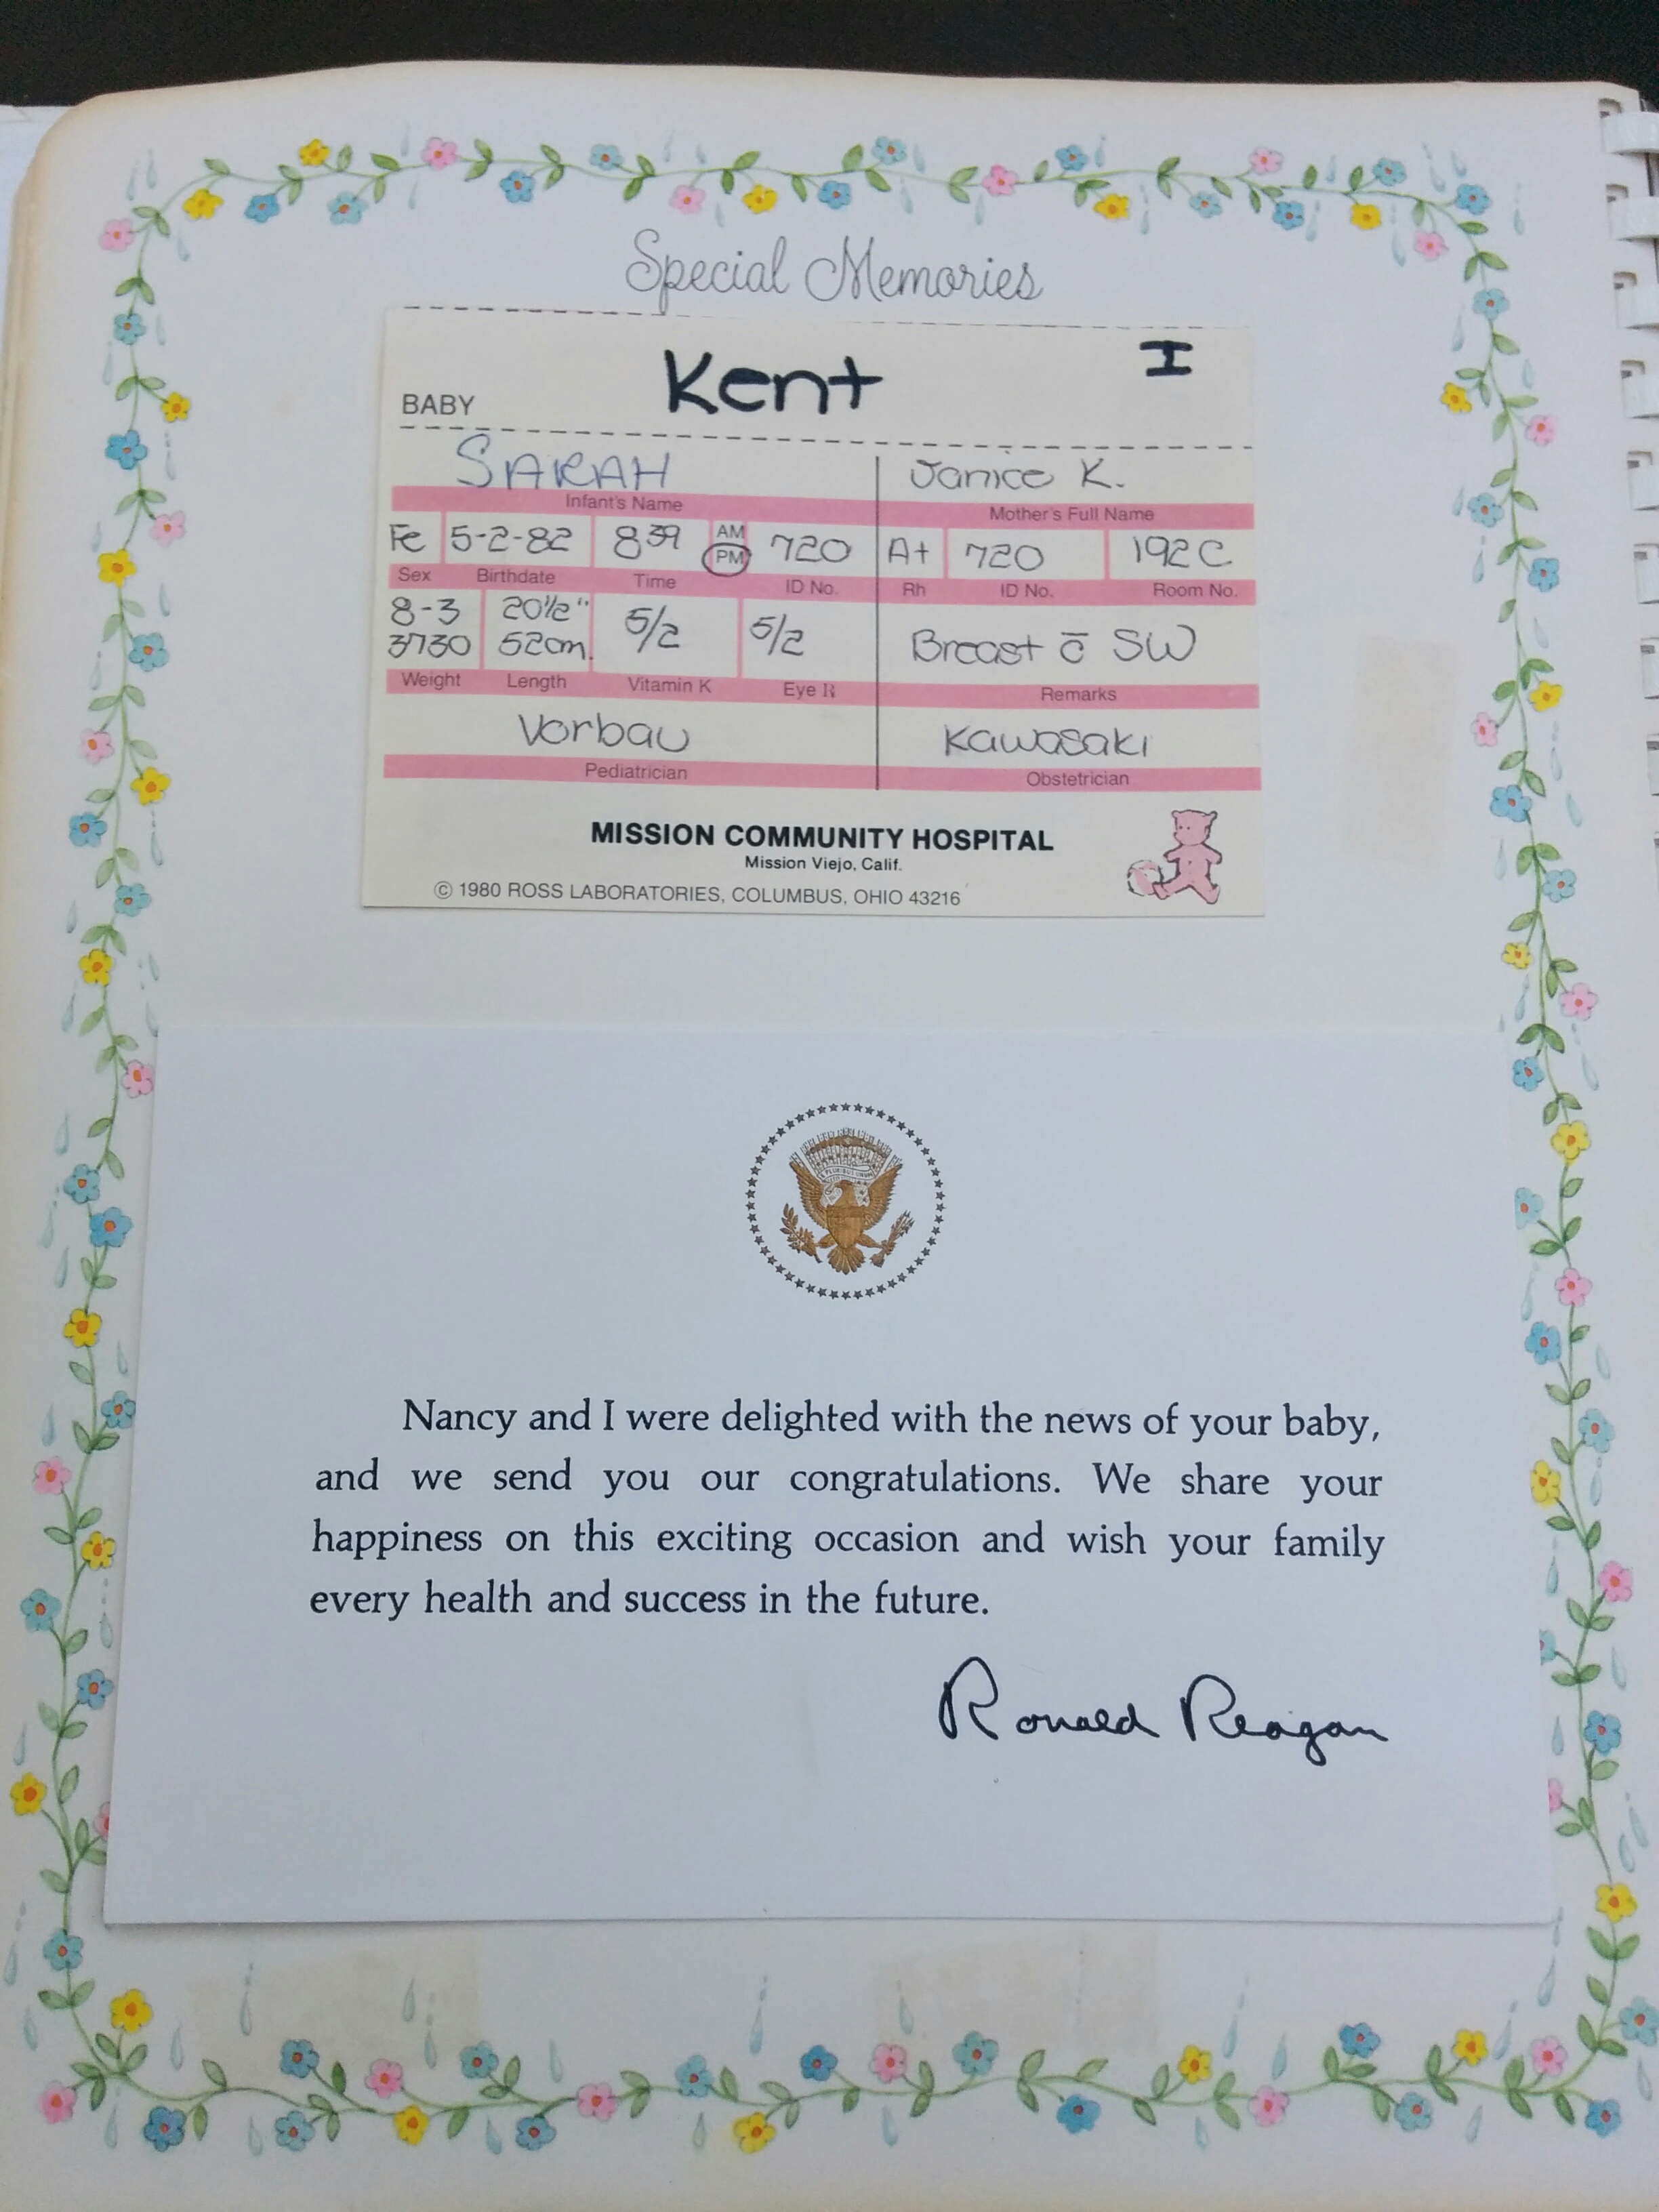 Special Memories
BABY Kent I
SARAH Janice K.
Infant's Name Mother's Full Name
Fe 5-2-82 8 39 AM PM 720 A+ 720 192C
Sex Birthdate Time ID No. Rh ID No. Room No.
8-3 20½"
3730 52cm. 5/2 5/2 Breast c̄ SW
Weight Length Vitamin K Eye ℞ Remarks
Vorbau Kawasaki
Pediatrician Obstetrician
MISSION COMMUNITY HOSPITAL
Mission Viejo, Calif.
© 1980 ROSS LABORATORIES, COLUMBUS, OHIO 43216
Nancy and I were delighted with the news of your baby,
and we send you our congratulations. We share your
happiness on this exciting occasion and wish your family
every health and success in the future.
Ronald Reagan